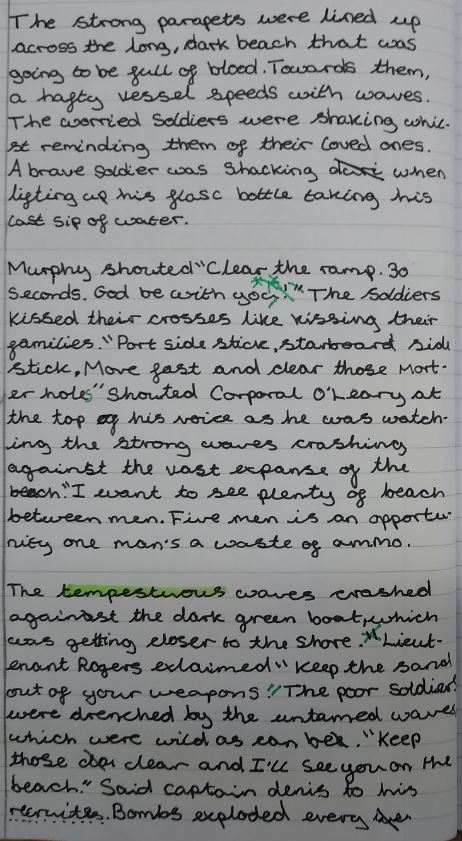 The strong parapets were lined up
across the long, dark beach that was
going to be full of blood. Towards them,
a hafty vessel speeds with waves.
The worried soldiers were shaking whil-
st reminding them of their loved ones.
A brave soldier was shacking when
lifting up his flasc bottle taking his
last sip of water.
Murphy shouted "Clear the ramp. 30
seconds. God be with you!" The soldiers
kissed their crosses like kissing their
families. "Port side stick, starboard side
stick, Move fast and clear those Mort-
er holes" shouted Corporal O'Leary at
the top of his voice as he was watch-
ing the strong waves crashing
against the vast expanse of the
beach. "I want to see plenty of beach
between men. Five men is an opportu-
nity one man's a waste of ammo.
The tempestuous waves crashed
against the dark green boat, which
was getting closer to the shore. Lieut-
enant Rogers exlaimed "Keep the sand
out of your weapons!" The poor soldiers
were drenched by the untamed waves
which were wild as can be. "Keep
those clear and I'll see you on the
beach." Said captain denis to his
recruites. Bombs exploded every